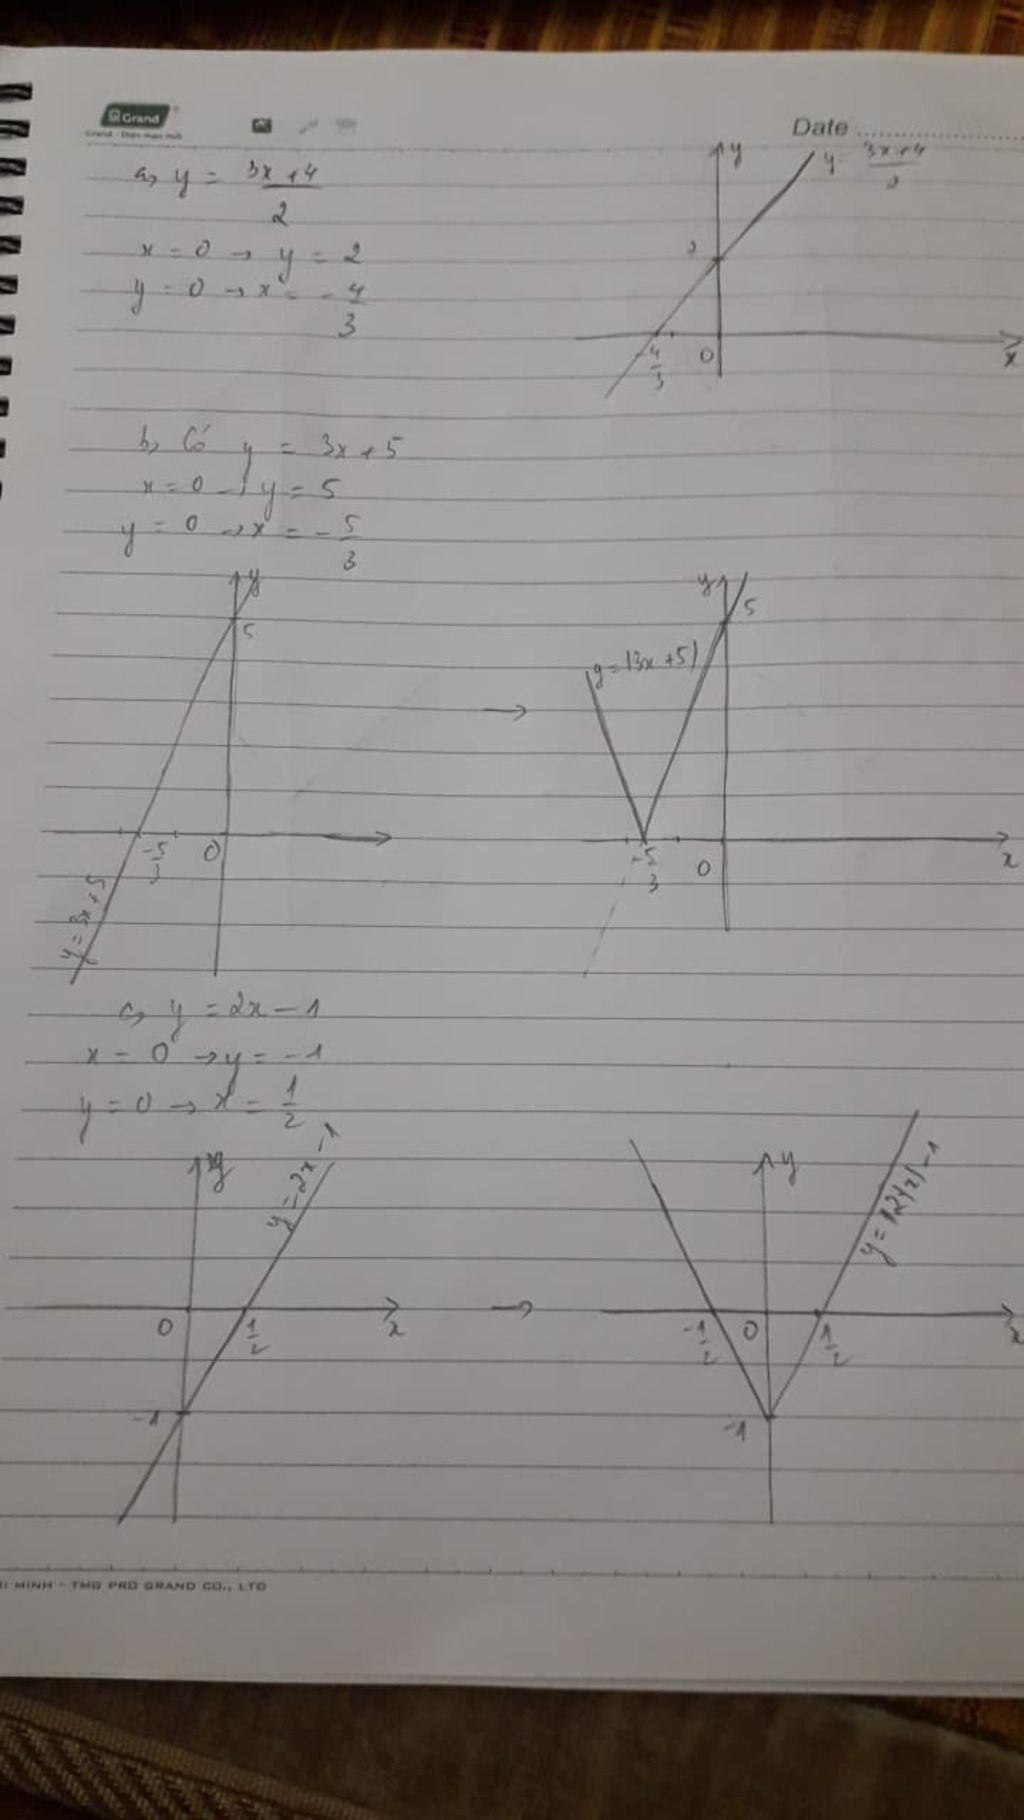 Grand
Date
a, y = 3x + 4
2
x = 0 → y = 2
y = 0 → x = - 4
3
y
y = 3x + 4
2
2
- 4
3
0
x
b, Có y = 3x + 5
x = 0 → y = 5
y = 0 → x = - 5
3
y
5
- 5
3
0
y = 3x + 5
→
y
5
y = |3x + 5|
- 5
3
0
x
c, y = 2x - 1
x = 0 → y = -1
y = 0 → x = 1
2
y
y = 2x - 1
0
1
2
x
-1
→
y
-1
2
0
1
2
x
-1
I MINH - TMG PRO GRAND CO., LTD